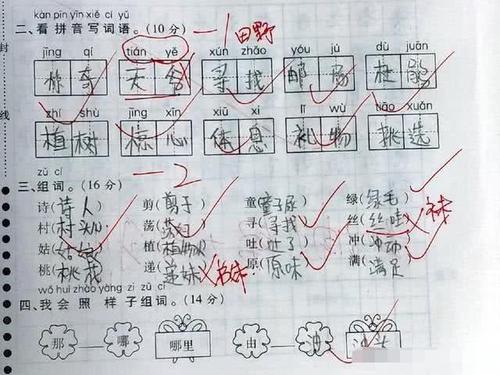 kàn pīn yīn xiě cí yǔ
二、看拼音写词语。(10分) 一1 田野
jīng qí tián yě xún zhǎo yóu jú dù juān
惊奇 天 寻找 邮局 杜鹃
zhí shù jīng xīn xiū xi lǐ wù tiāo xuǎn
植树 惊心 休息 礼物 挑选
一2
三、组词。(16分)
诗(诗人) 剪(剪子) 童( ) 绿(绿毛)
村(村头) 荡( ) 寻(寻找) 丝(丝哇) 妹
姑(姑娘) 植(植物人) 吐(吐了) 冲(冲动)
桃(桃花) 递(递妹) 弟妹 原(原味) 满(满足)
wǒ huì zhào yàng zi zǔ cí
四、我会照样子组词。(14分)
那 哪 哪里 由 油
封
线